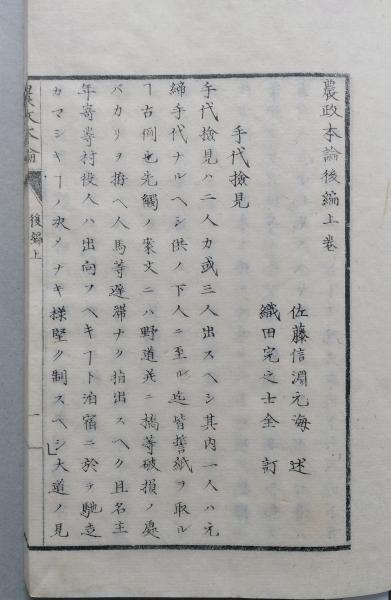 農政本論後編上巻
佐藤信淵元海 述
織田完之士全 訂
手代撿見
手代撿見ハ二人カ或三人出スヘシ其内一人ハ元
締手代ナルヘシ供ノ下人ニ至ル迄皆誓紙ヲ取ル
ヿ古例也先觸ノ案文ニハ野道并ニ橋等破損ノ處
バカリヲ拵ヘ人馬等遅滞ナク指出スヘク且名主
年寄等村役人ハ出向フヘキヿト泊宿ニ於テ馳走
カマシキヿノ決〆ナキ様堅ク制スヘシ」大道ノ見
農政本論
後編上
一